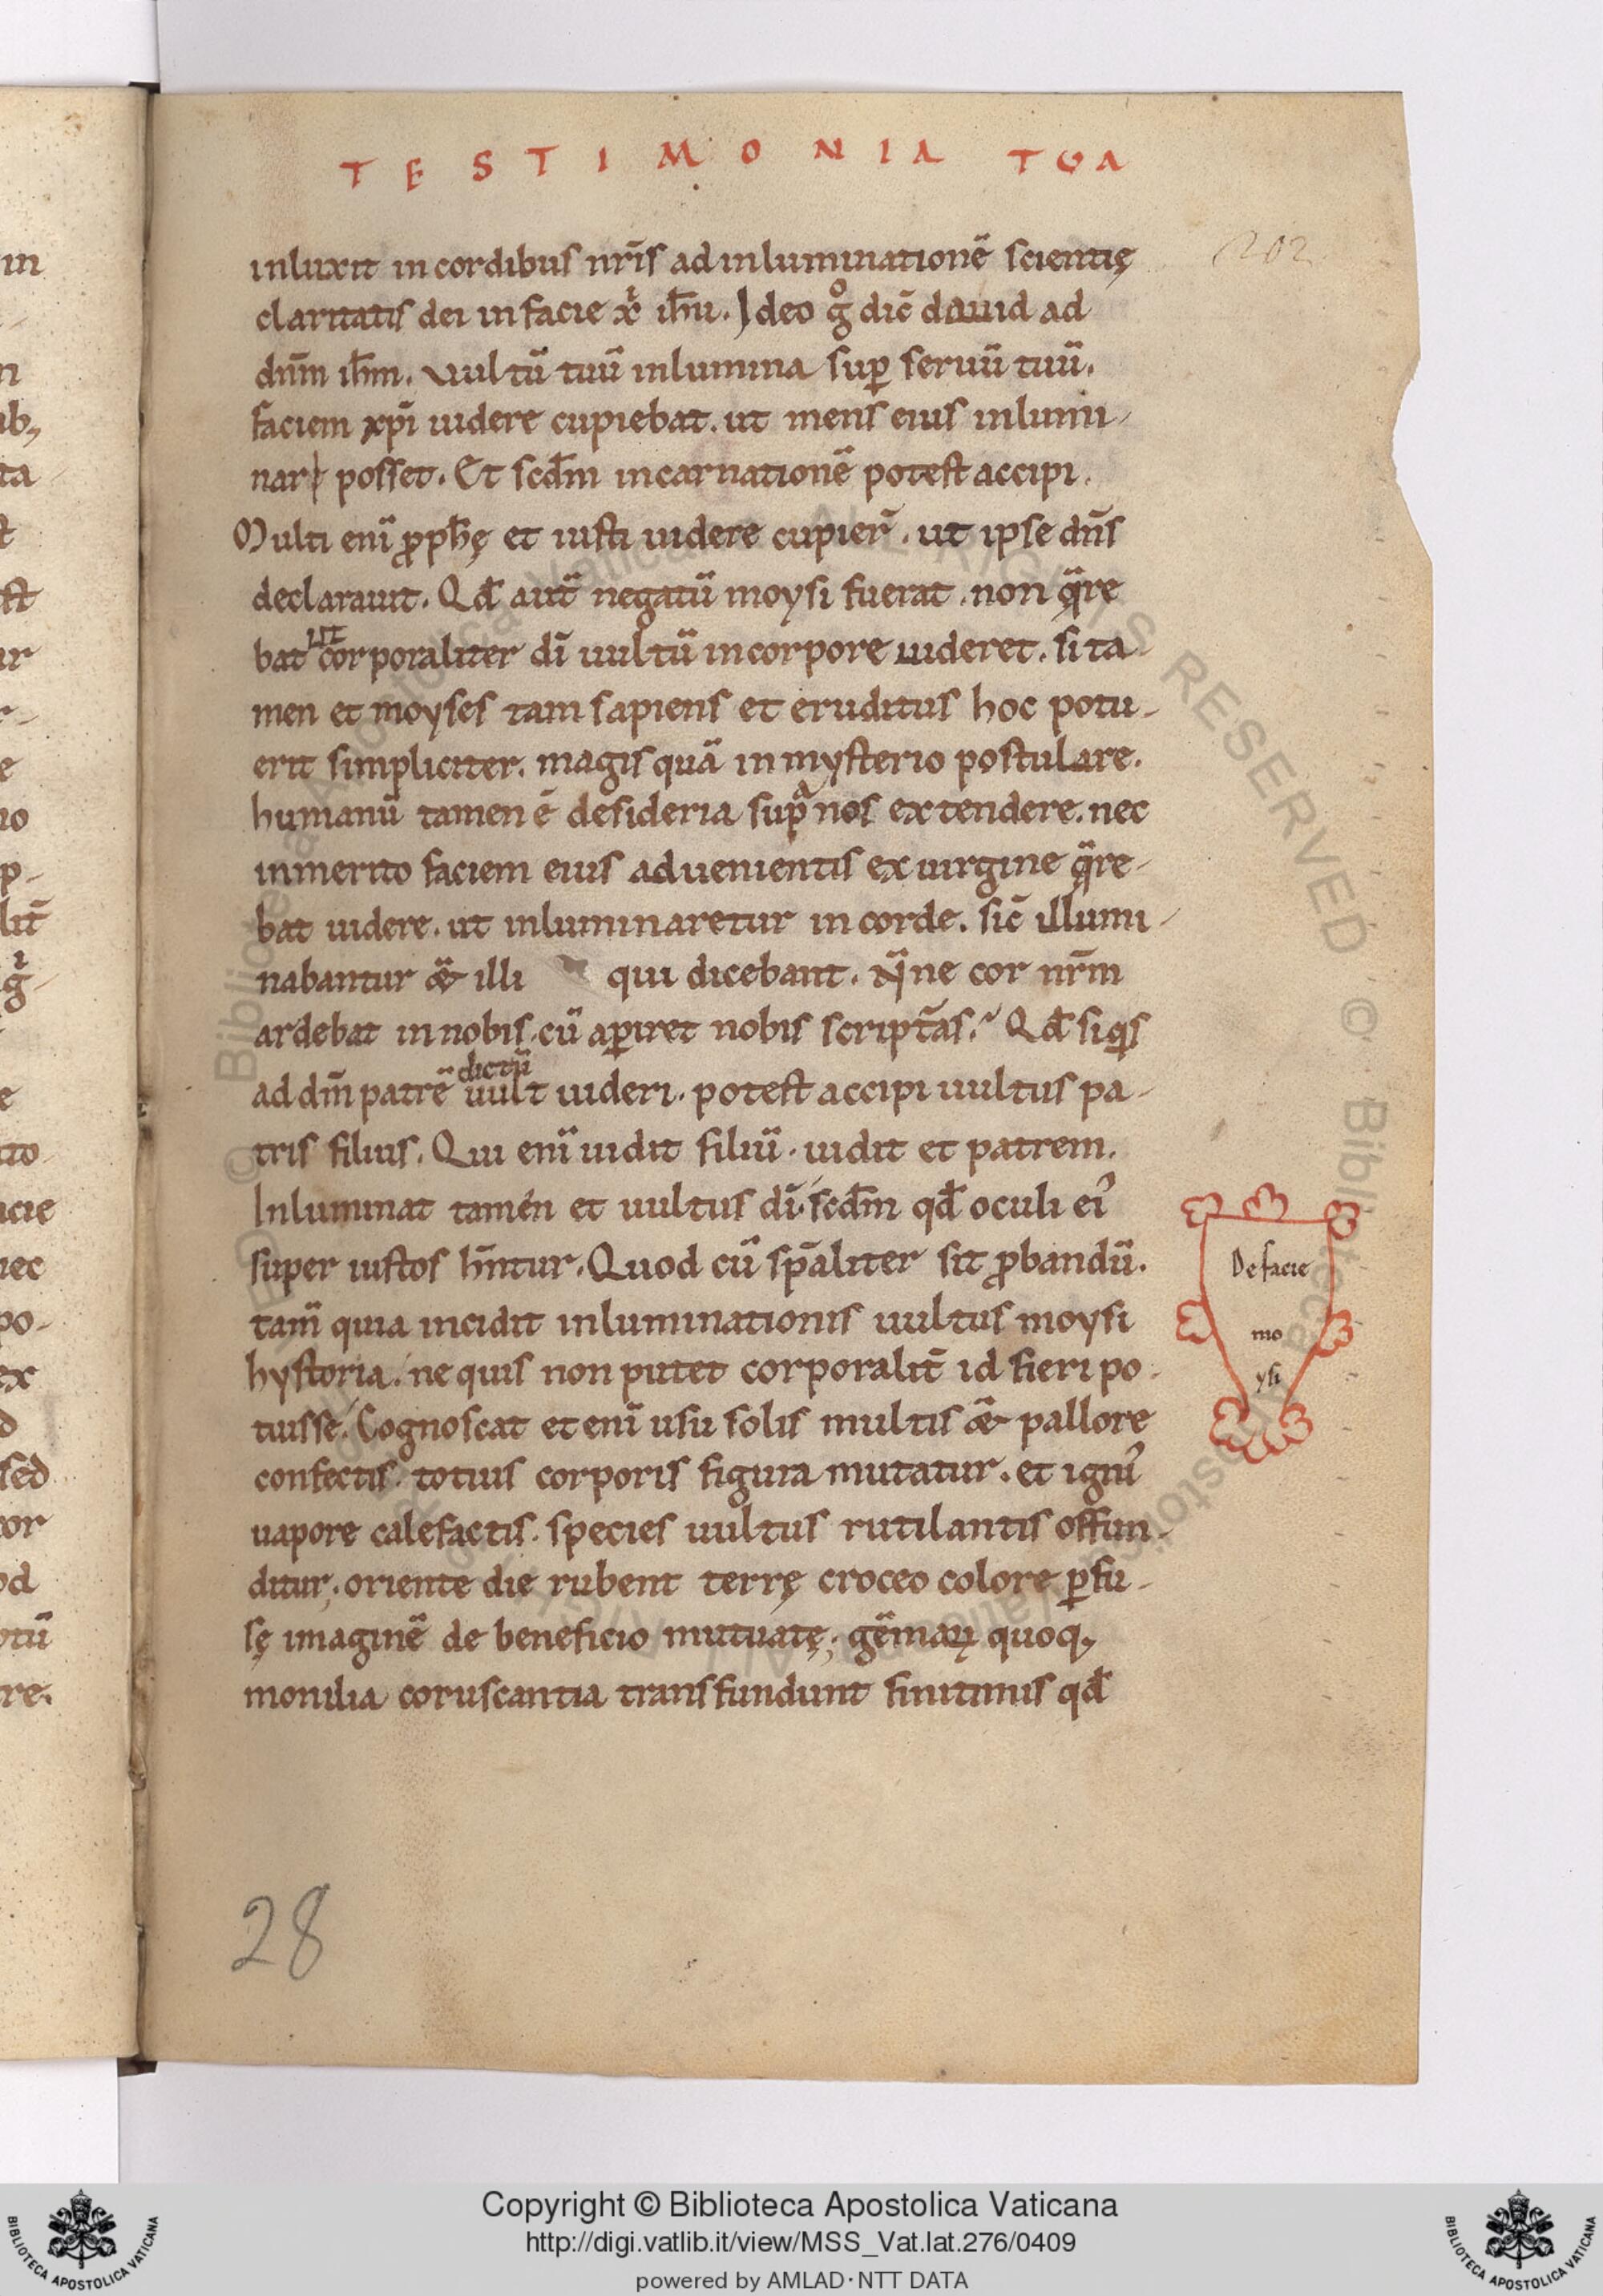 TESTIMONIA TUA
202
inluxit in cordibus nr̄is ad inluminationē scientię
claritatis dei in facie xp̄i ih̄u. Ideo gͦ dic̄ dauid ad
dn̄m ih̄m. uultū tuū inlumina sup̱ seruū tuū.
faciem xp̄i uidere cupiebat. ut mens eius inlumi-
nari posset. Et scd̄m incarnationē potest accipi.
Multi enī ꝓph̄ę et iusti uidere cupier̄. ut ipse dn̄s
declarauit. Qd̄ aut̄ negatū moysi fuerat. non q̄re
bat ut corporaliter dī uultū in corpore uideret. si ta
men et moyses tam sapiens et eruditus hoc potu-
erit simpliciter. magis quā in mysterio postulare.
humanū tamen ē desideria supᵃ nos extendere. nec
inmerito faciem eius aduenientis ex uirgine q̄re-
bat uidere. ut inluminaretur in corde. sic̄ illumi-
nabantur & illi qui dicebant. N̄ne cor nr̄m
ardebat in nobis. cū aꝑiret nobis script̄as. Qd̄ siqͥs
ad dm̄ patrē dictū uult uideri. potest accipi uultus pa-
tris filius. Qui enī uidit filiū. uidit et patrem.
Inluminat tamen et uultus dī. scd̄m qd̄ oculi ei᾿
super iustos hn̄tur. Quod cū sp̄aliter sit ꝓbandū.
tam̄ quia incidit inluminationis uultus moysi
hystoria. ne quis non putet corporalit̄ id fieri po-
tuisse. Cognoscat et enī usu solis multis & pallore
confectis. totius corporis figura mutatur. et igni᾿
uapore calefactis. species uultus rutilantis offun-
ditur; oriente die rubent terrę croceo colore ꝑfu-
sę imaginē de beneficio mutuatę; gēmaꝝ quoq;
monilia coruscantia transfundunt finitimis qd̄
De facie
mo
ysi
28
in
n
ib;
ta
st
ur
e
no
p-
lit̄
e
ito
acie
nec
po-
ex
d
sed
cor
od
otū
re.
© Biblioteca Apostolica Vaticana ALL RIGHTS RESERVED
Copyright © Biblioteca Apostolica Vaticana
http://digi.vatlib.it/view/MSS_Vat.lat.276/0409
powered by AMLAD·NTT DATA
BIBLIOTECA APOSTOLICA VATICANA
BIBLIOTECA APOSTOLICA VATICANA